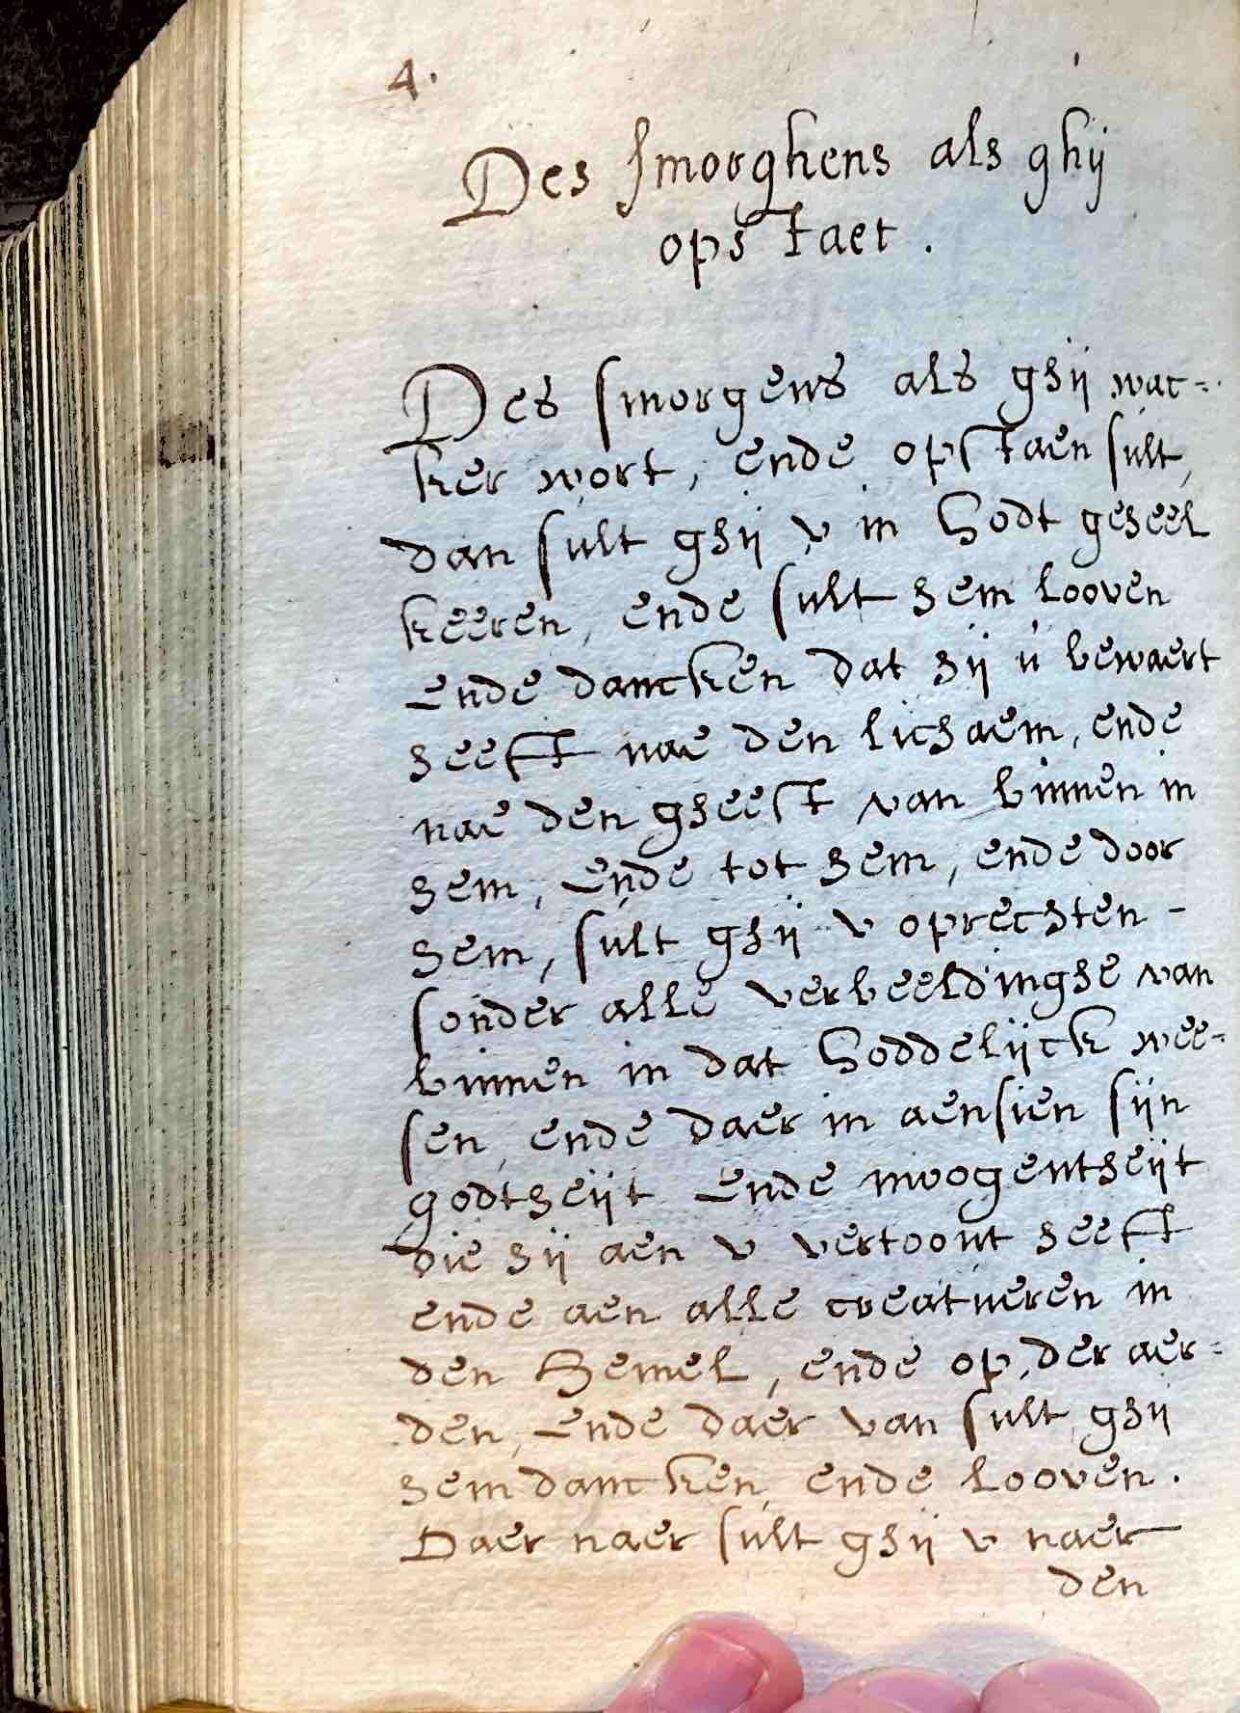 4.
Des smorghens als ghij
opstaet.
Des smorgens als ghij wac=
ker wort, ende opstaen sult,
dan sult ghij v in Godt geheel
keeren, ende sult hem looven
ende dancken dat hij u bewaert
heeft nae den lichaem, ende
nae den gheest van binnen in
hem, ende tot hem, ende door
hem, sult ghij v oprechten -
sonder alle verbeeldinghe van
binnen in dat Goddelijck wee=
sen, ende daer in aensien sijn
godtheijt ende moogentheijt
die hij aen v vertoont heeft
ende aen alle creatueren in
den Hemel, ende op der aer=
den, ende daer van sult ghij
hem dancken, ende looven.
Daer naer sult ghij v naer
den